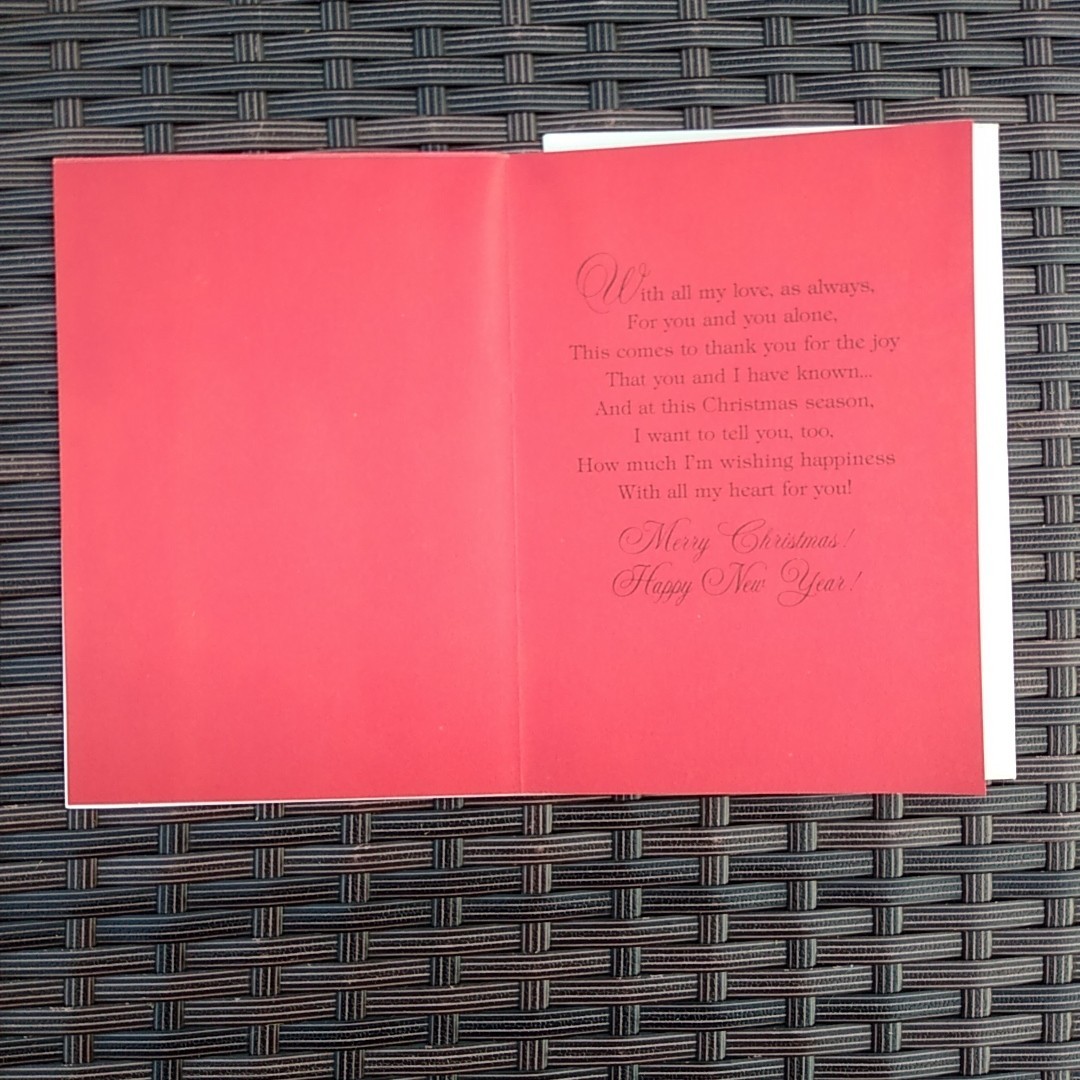 With all my love, as always,
For you and you alone,
This comes to thank you for the joy
That you and I have known...
And at this Christmas season,
I want to tell you, too,
How much I'm wishing happiness
With all my heart for you!
Merry Christmas!
Happy New Year!